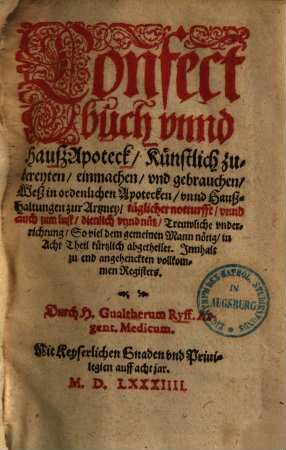 Confect
buch vnnd
Hausz Apoteck / Künstlich zu-
bereyten / einmachen / vnd gebrauchen /
Weß in ordenlichen Apotecken / vnnd Hauß-
haltungen zur Artzney / täglicher notturfft / vnnd
auch zum lust / dienlich vnnd nütz / Trewliche vnder-
richtung / So viel dem gemeinen Mann nötig / in
Acht Theil kürtzlich abgetheilet. Innhalt
zu end angehenckten vollkom-
menen Registers.
Durch H. Gualtherum Ryff. Ar-
gent. Medicum.
Mit Keyserlichen Gnaden vnd Priui-
legien auff acht jar.
M. D. LXXXIIII.
IN
AUGSBURG